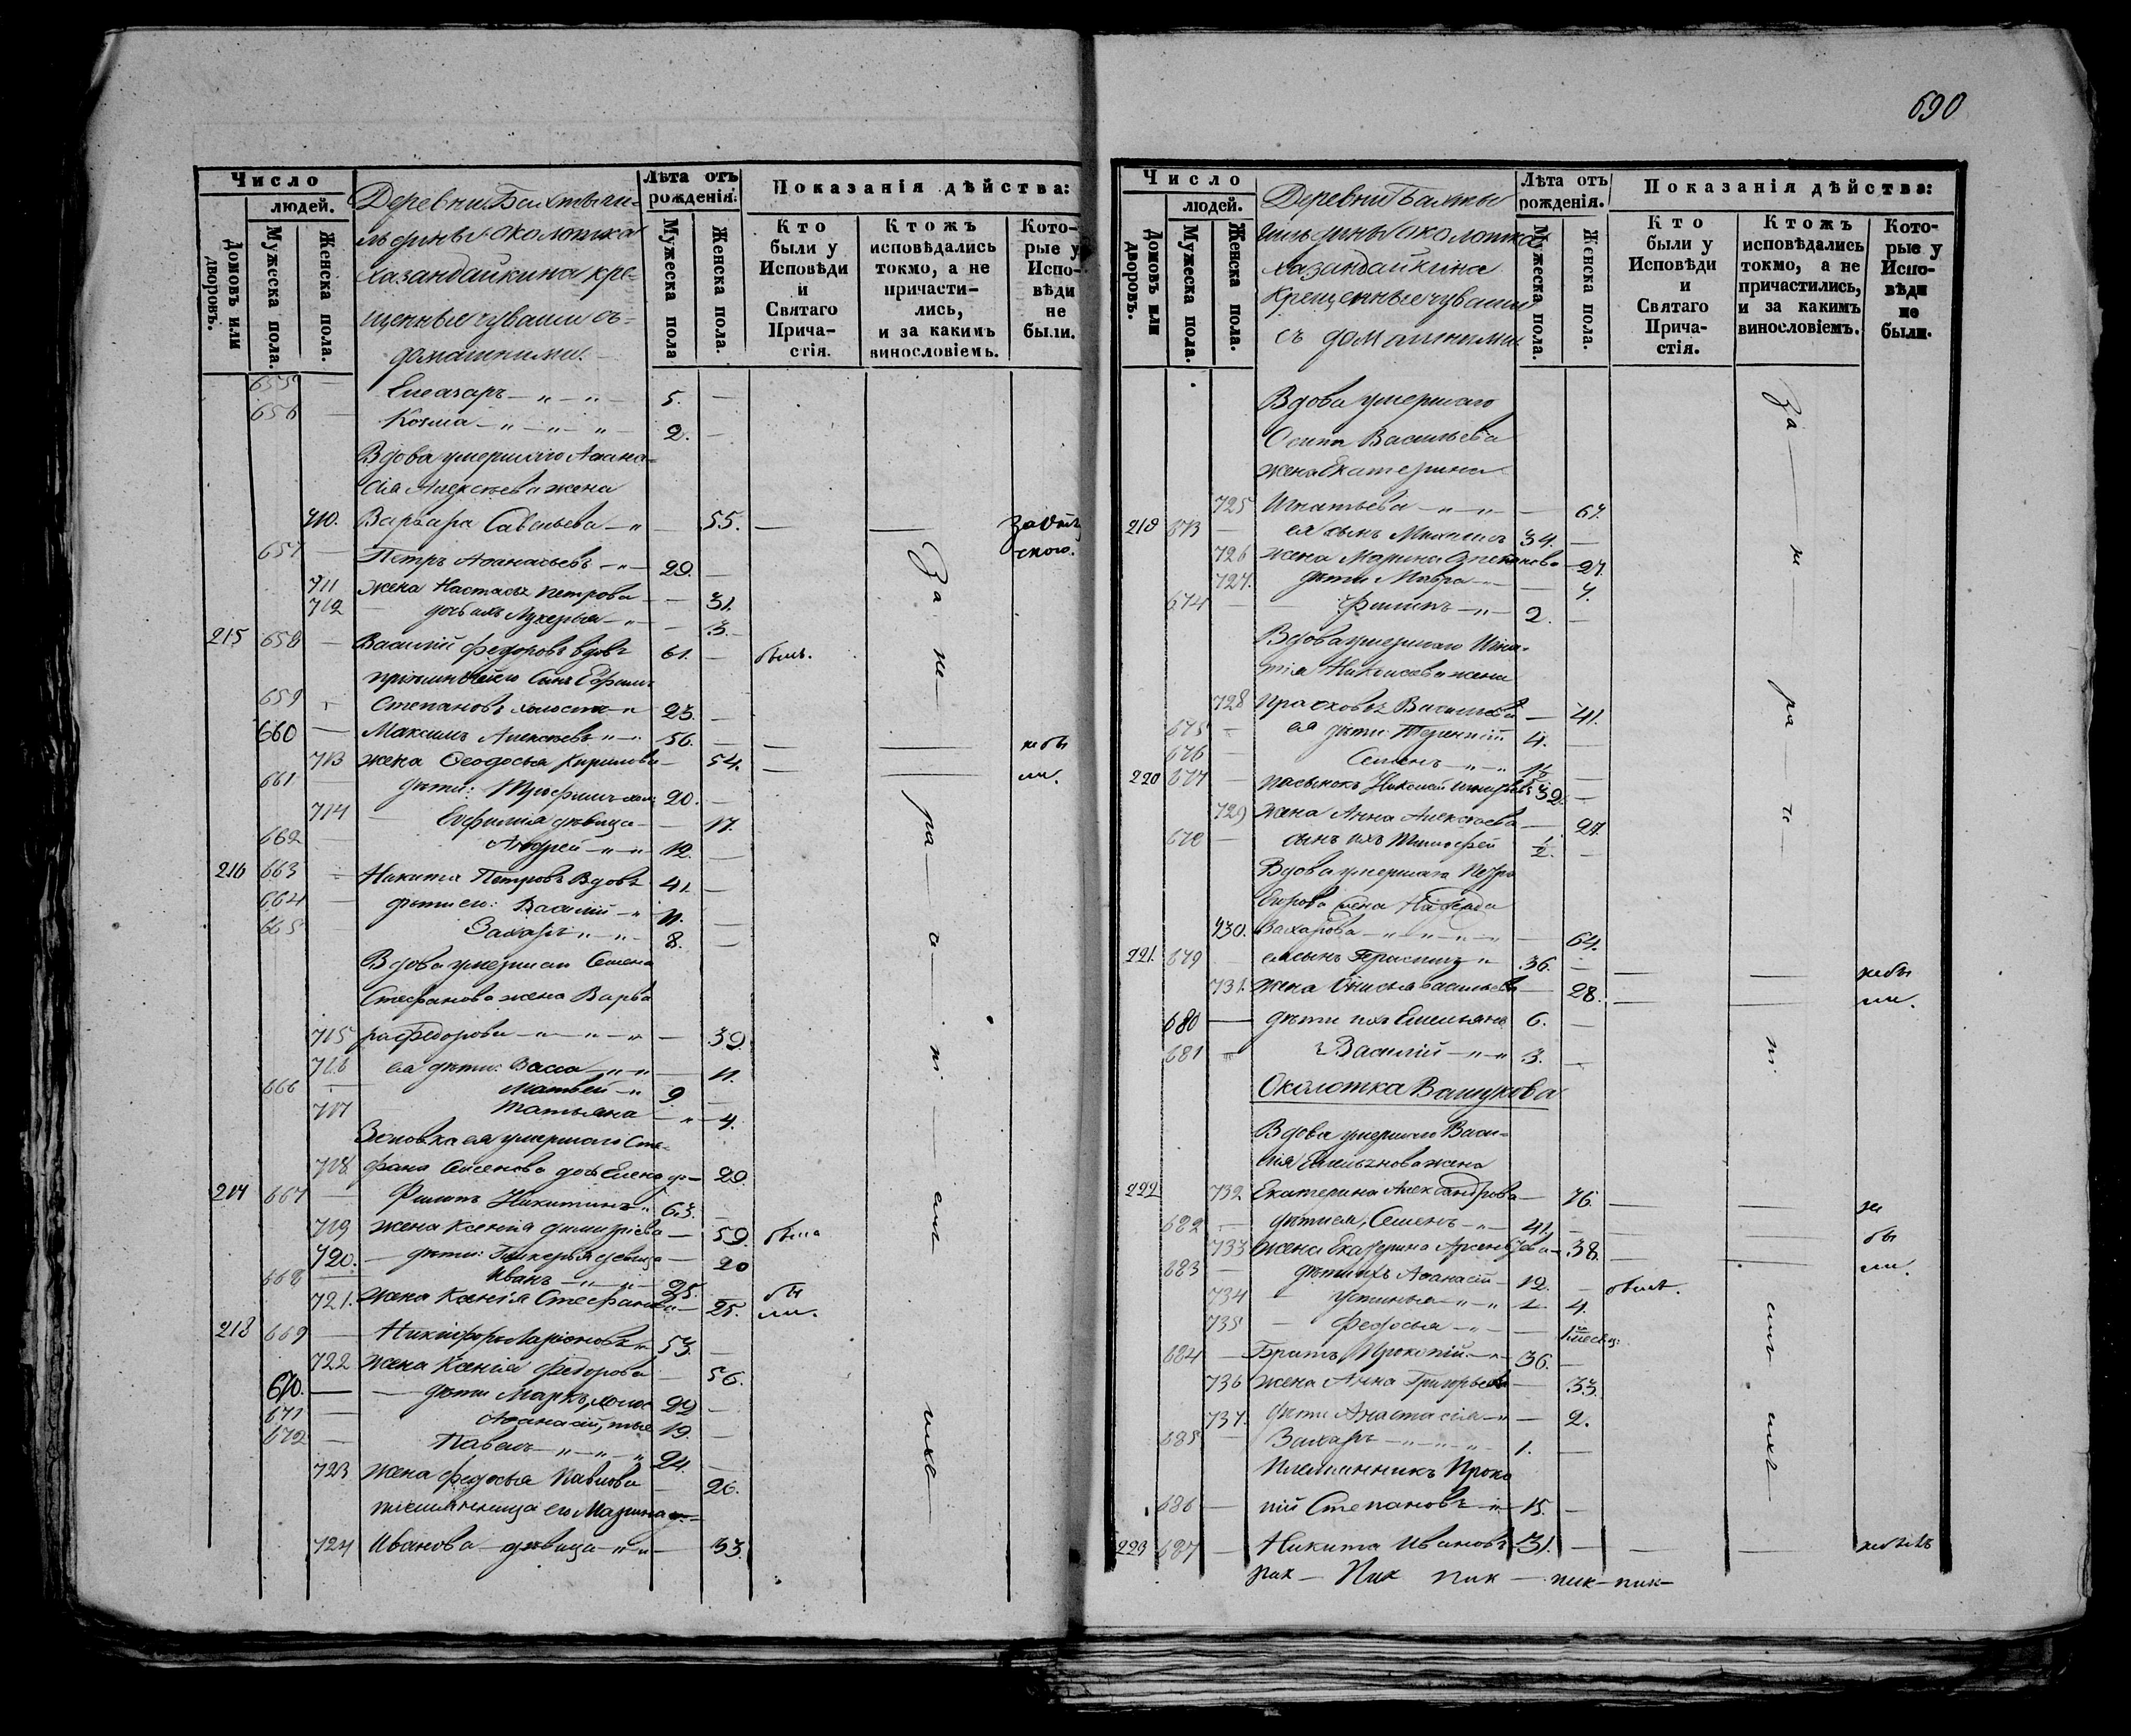 690
Число
людей.
Домовъ или дворовъ.
Мужеска пола.
Женска пола.
Деревни Бахтыги-
льдины околотка
Хазандайкина кре-
щенные чуваши съ
домашними.
Лѣта отъ рожденія.
Мужеска пола
Женска пола.
Показанія дѣйства:
Кто были у Исповѣди и Святаго Прича- стія.
Ктожъ исповѣдались токмо, а не причасти- лись, и за какимъ винословіемъ.
Кото- рые у Испо- вѣди не были.
655 — Елеазаръ 5. —
656 — Козма 2. —
Вдова умершаго Афана-
сія Алексѣева жена
710. Варвара Савельева — 55.
657 — Петръ Афанасьевъ 29. —
711 жена Настасья Петрова — 31.
712 дочь ихъ Лукерья — 3.
215 658 — Василій Федоровъ вдовъ 61. — былъ.
сынъ Ефимъ
659 Степановъ холостъ 23. —
660 — Максимъ Алексѣевъ 56. — небы
713 жена Феодосья Кирилова — 54. ли.
661 дѣти: Трофимъ 20. —
714 Евфимія дѣвица — 17.
662 — Андрей 12. —
216 663 Никита Петровъ вдовъ 41. —
664 — дѣти ею: Василій 11. —
665 Захаръ 8. —
Вдова умершаго Семена
Стефанова жена Варва
715 ра Федорова — 39.
716 ея дѣти: Васса — 11.
666 Матвей 9 —
717 Татьяна — 4.
умершаго Сте-
718 фана Семенова дочь Елена — 29.
217 667 — Филипъ Никитинъ 63. —
719 жена Ксенія Димитріева — 59. была
720. дѣти: Гликерья дѣвица — 20
668 Иванъ 25. — бы
721. жена Ксенія Стефанова — 25. ли.
218 669 — Никифоръ Ларіоновъ 53. —
722 жена Ксенія Федорова — 56.
670. — дѣти Маркъ, холос 22 —
671 — Афанасій, тоже 19. —
672 — Павелъ 24. —
723 жена Федосья Павлова — 26.
племянница его Марина
724 Иванова дѣвица — 33.
За — не — ра — с — ті — емъ — ихъ
Число
людей.
Домовъ или дворовъ.
Мужеска пола.
Женска пола.
Деревни Бахты
гильдины околотка
Хазандайкина
крещенные чуваши
съ домашними.
Лѣта отъ рожденія.
Мужеска пола.
Женска пола.
Показанія дѣйства:
Кто были у Исповѣди и Святаго Прича- стія.
Ктожъ исповѣдались токмо, а не причастились, и за какимъ винословіемъ.
Кото- рые у Испо- вѣди не были.
Вдова умершаго
Осипа Васильева
жена Екатерина
725 Игнатьева — 67.
219 673 ея сынъ Михаилъ 34. —
726 жена Марина Степанова — 27.
727. дѣти Мавра — 7.
674 — Филипъ 2. —
Вдова умершаго Игна-
тія Никифорова жена
728 Прасковья Васильева — 41.
675 ея дѣти Терентій 4. —
676 — Семенъ —
220 677 — пасынокъ 32. —
729 жена Анна Алексѣева — 27.
678 — сынъ ихъ Тимофей ½. —
Вдова умершаго Петра
Егорова жена Надежда
730. Захарова — 64.
221. 679 ея сынъ Герасимъ 36. — небы
731. жена Онисья Васильева — 28. ли.
680 — дѣти ихъ Емельянъ 6. —
681 Василій 3. —
Околотка Вашукова
Вдова умершаго Васи-
лія Емельянова жена
222 732 Екатерина Александрова — 76. не
682 — дѣти ея, Семенъ 41. — бы
733 жена Екатерина Арсеньева — 38. ли.
683 — дѣти ихъ Афанасій 12. — былъ.
734 Устинья 4.
735 — Федосья —
684 — Братъ Прокопій 36. —
736 жена Анна Григорьева — 33.
737. дѣти Анастасія — 2.
685 — Захаръ 1. —
Племянникъ Проко
686 — пій Степановъ 15. —
223 687 — Никита Ивановъ 31. — небылъ
За — не — ра — с — ті — емъ — ихъ